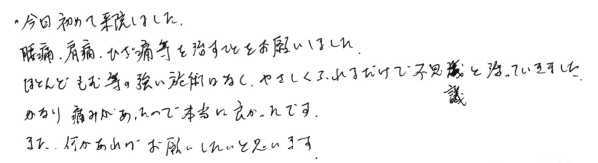 ・今日初めて来院しました。
腰痛、肩痛、ひざ痛等を治すことをお願いしました。
ほとんどもむ等の強い施術はなく、やさしくふれるだけで不思議と治っていきました。
かなり痛みがあったので本当に良かったです。
また、何かあればお願いしたいと思います。